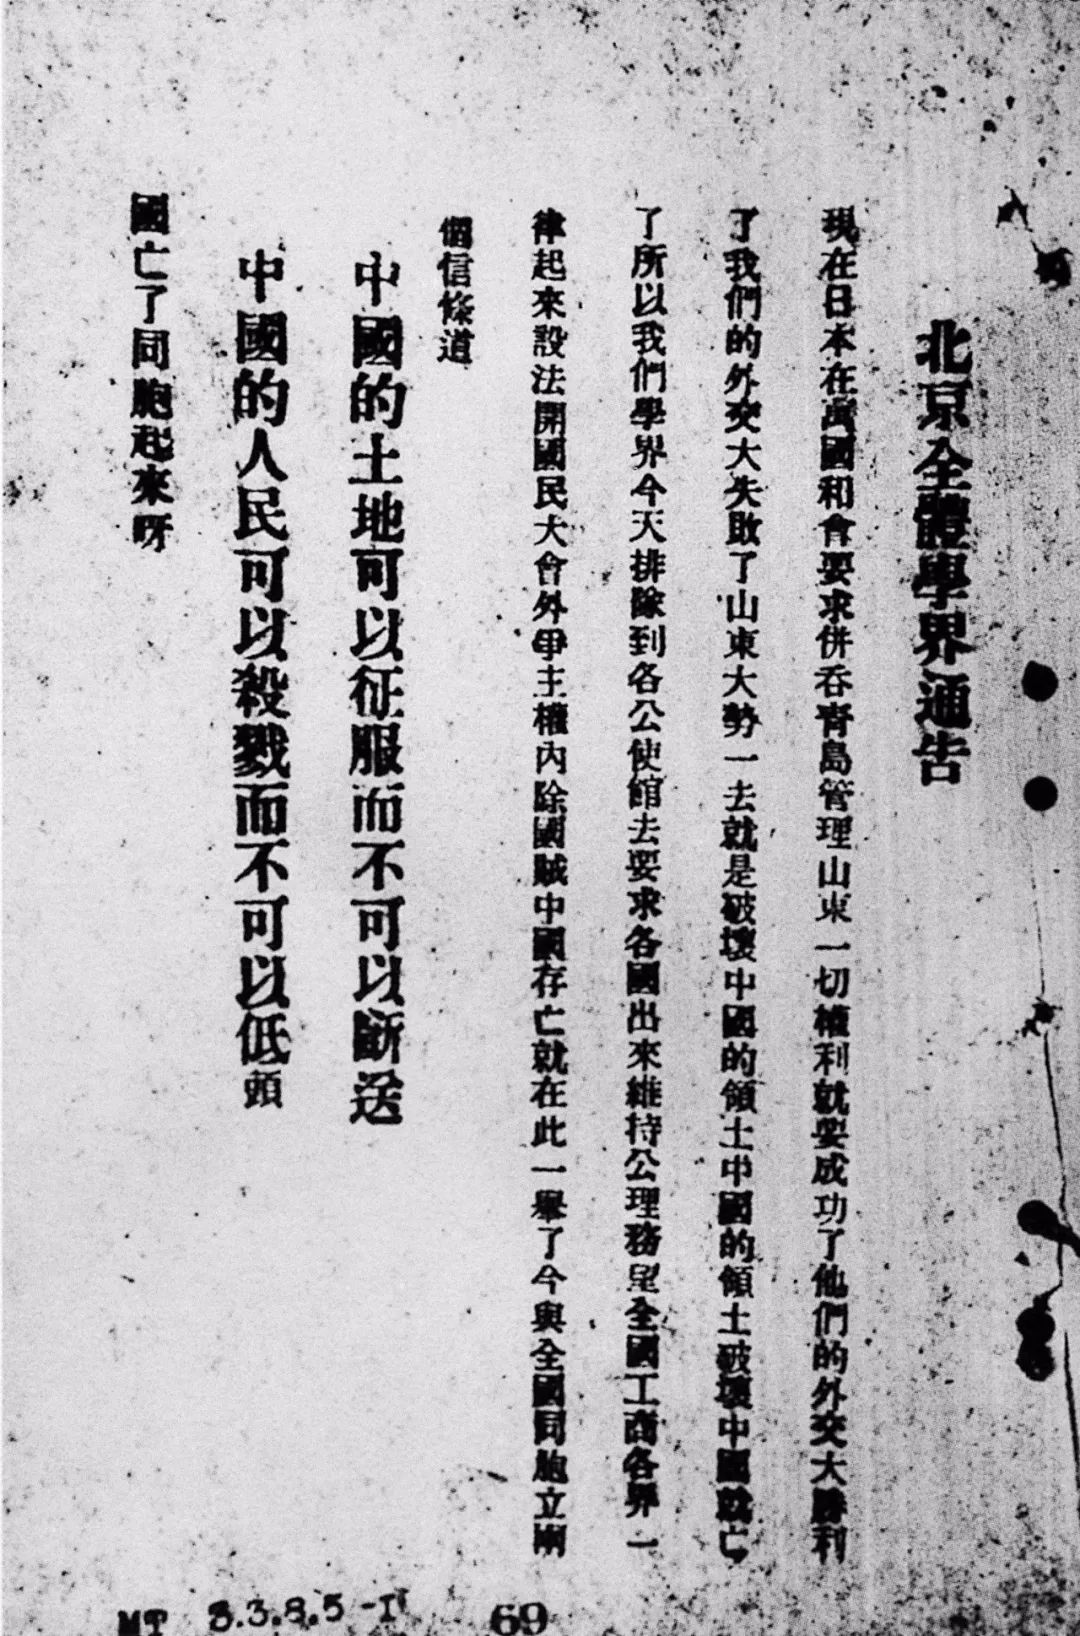 北京全體學界通告
現在日本在萬國和會要求併吞青島管理山東一切權利就要成功了他們的外交大勝利
了我們的外交大失敗了山東大勢一去就是破壞中國的領土中國的領土破壞中國就亡
了所以我們學界今天排隊到各公使館去要求各國出來維持公理務望全國工商各界一
律起來設法開國民大會外爭主權內除國賊中國存亡就在此一舉了今與全國同胞立兩
個信條道
中國的土地可以征服而不可以斷送
中國的人民可以殺戮而不可以低頭
國亡了同胞起來呀
MT 3.3.8.5-1
69